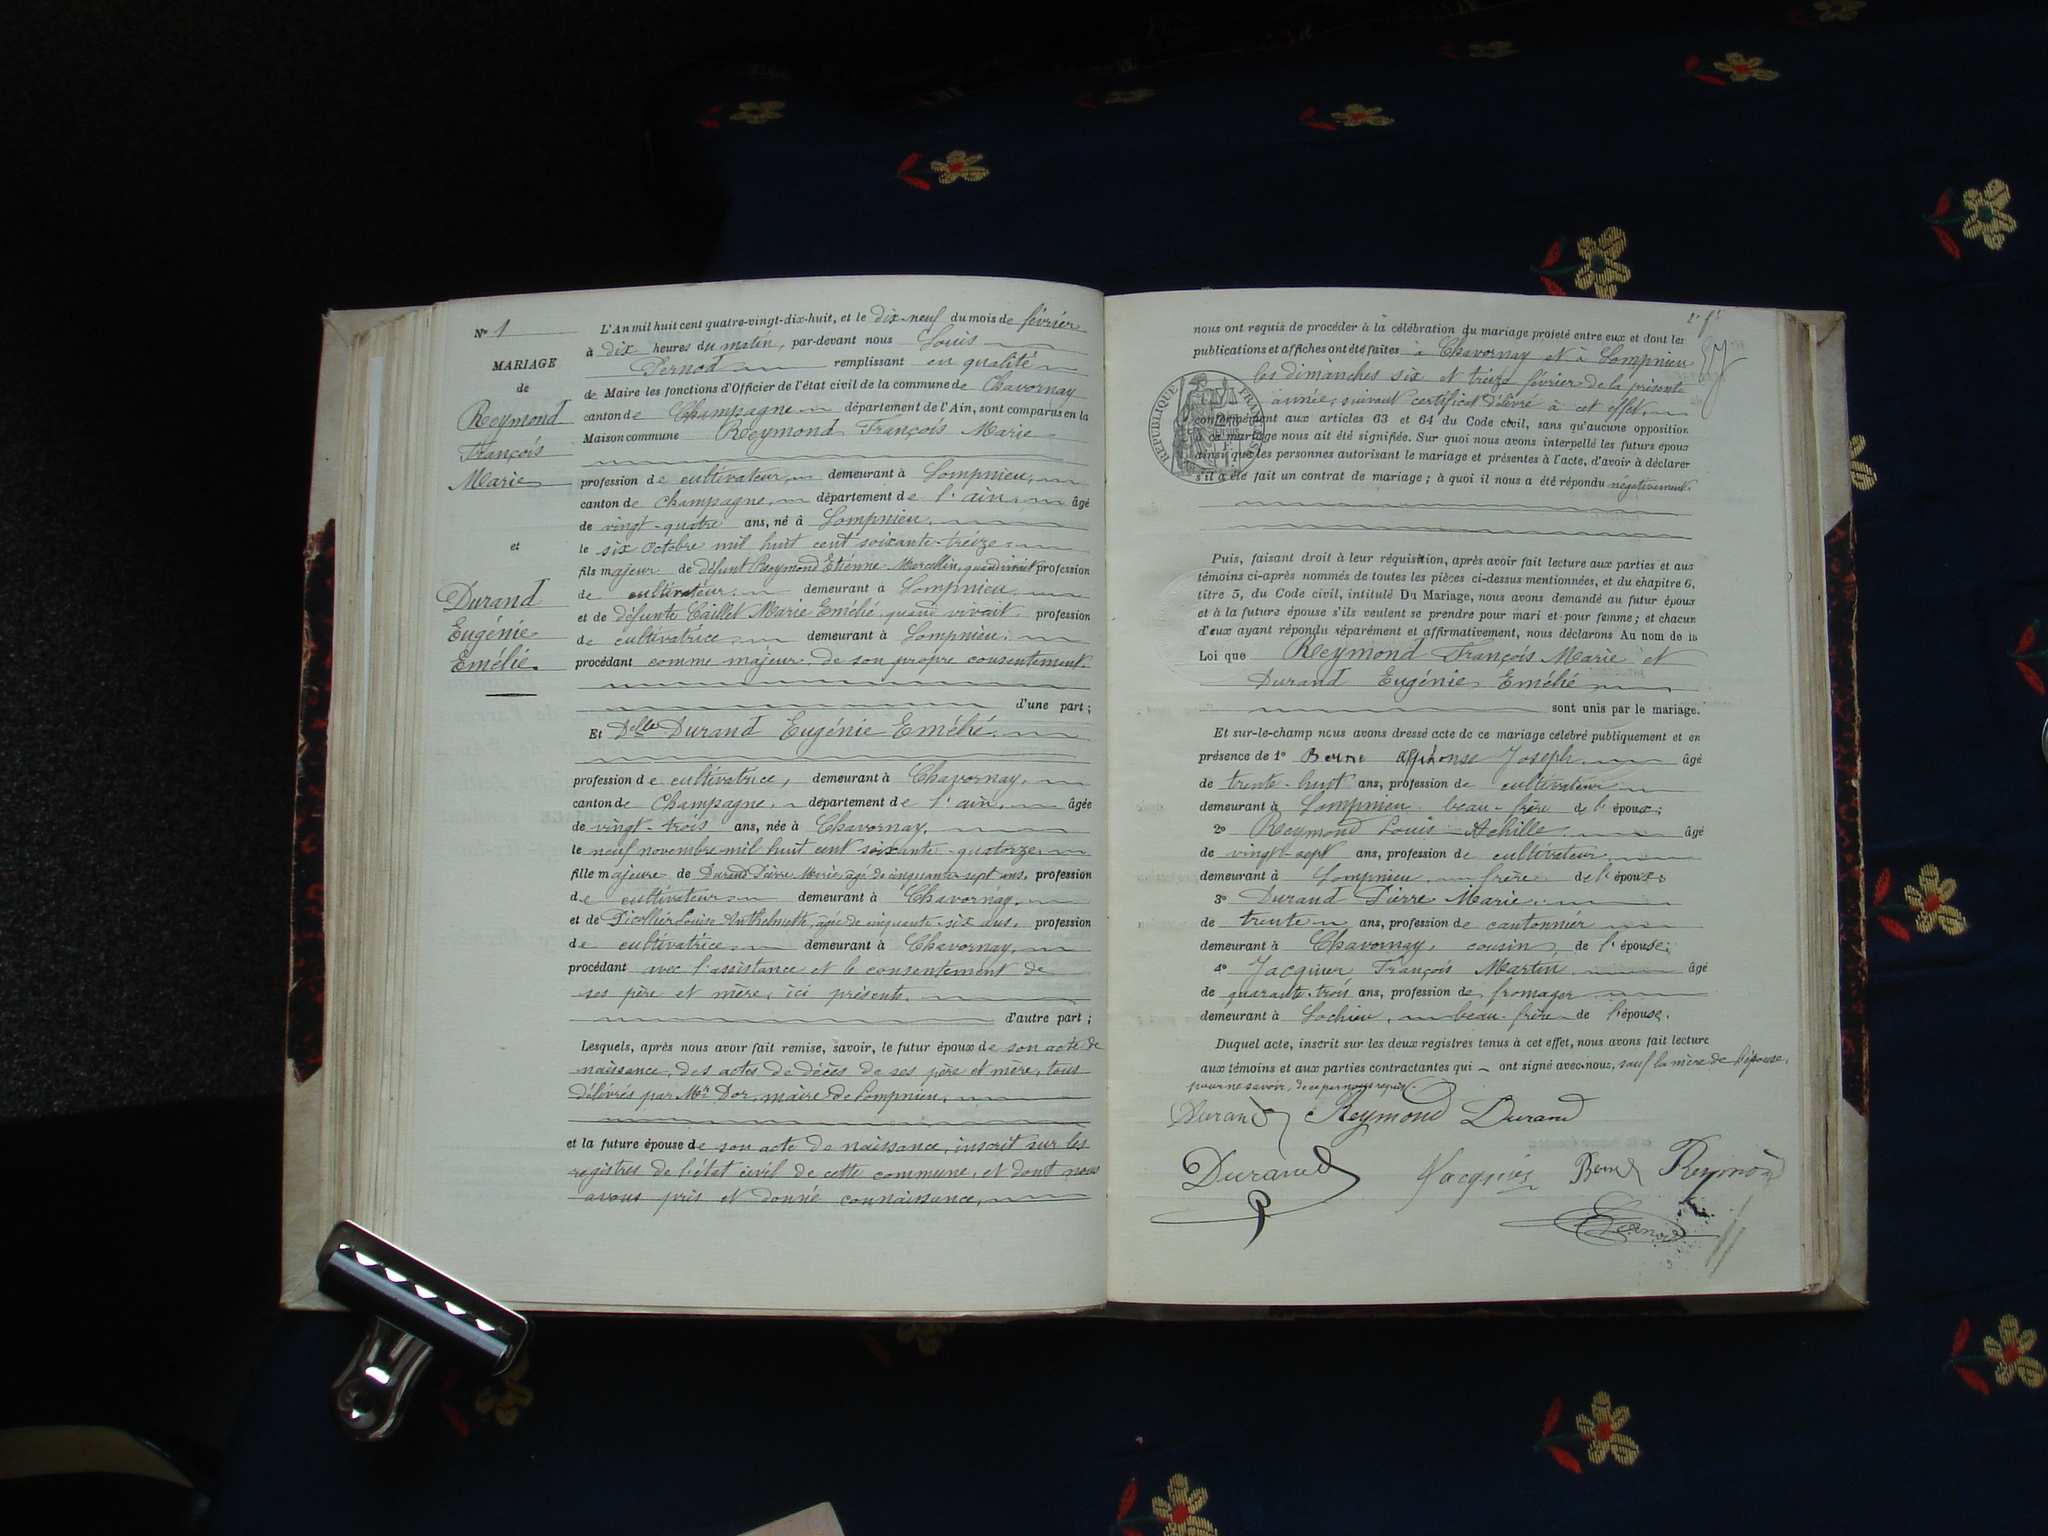 N° 1
MARIAGE
de
Reymond
François
Marie
et
Durand
Eugénie
Emélie.
L'An mil huit cent quatre-vingt-dix-huit, et le dix-neuf du mois de février
à dix heures du matin, par-devant nous Louis
Pernod remplissant en qualité
de Maire les fonctions d'Officier de l'état civil de la commune de Chavornay
canton de Champagne département de l'Ain, sont comparus en la
Maison commune Reymond François Marie
profession de cultivateur, demeurant à Lompnieu,
canton de Champagne, département de l'ain, âgé
de vingt-quatre ans, né à Lompnieu,
le six Octobre mil huit cent soixante-treize
fils majeur de défunt Reymond Etienne Marcellin, quand vivait profession
de cultivateur demeurant à Lompnieu,
et de défunte Caillet Marie Emélie quand vivait, profession
de cultivatrice demeurant à Lompnieu,
procédant comme majeur de son propre consentement.
d'une part;
Et Delle Durand Eugénie Emélie,
profession de cultivatrice, demeurant à Chavornay,
canton de Champagne, département de l'ain, âgée
de vingt-trois ans, née à Chavornay,
le neuf novembre mil huit cent soixante-quatorze
fille majeure de Durand Pierre Marie, âgé de cinquante-sept ans, profession
de cultivateur demeurant à Chavornay,
et de Louise Anthelmette, âgée de cinquante-six ans, profession
de cultivatrice demeurant à Chavornay,
procédant avec l'assistance et le consentement de
ses père et mère, ici présents,
d'autre part;
Lesquels, après nous avoir fait remise, savoir, le futur époux de son acte de
naissance, des actes de décès de ses père et mère, tous
délivrés par Mr Dor, maire de Lompnieu,
et la future épouse de son acte de naissance, inscrit sur les
registres de l'état civil de cette commune, et dont nous
avons pris et donné connaissance,
nous ont requis de procéder à la célébration du mariage projeté entre eux et dont les
publications et affiches ont été faites à Chavornay et à Lompnieu
les dimanches six et treize février de la présente
année, suivant certificat délivré à cet effet,
RÉPUBLIQUE FRANÇAISE
conformément aux articles 63 et 64 du Code civil, sans qu'aucune opposition
à ce mariage nous ait été signifiée. Sur quoi nous avons interpellé les futurs époux
ainsi que les personnes autorisant le mariage et présentes à l'acte, d'avoir à déclarer
s'il a été fait un contrat de mariage; à quoi il nous a été répondu négativement.
Puis, faisant droit à leur réquisition, après avoir fait lecture aux parties et aux
témoins ci-après nommés de toutes les pièces ci-dessus mentionnées, et du chapitre 6,
titre 5, du Code civil, intitulé Du Mariage, nous avons demandé au futur époux
et à la future épouse s'ils veulent se prendre pour mari et pour femme; et chacun
d'eux ayant répondu séparément et affirmativement, nous déclarons Au nom de la
Loi que Reymond François Marie et
Durand Eugénie Emélie
sont unis par le mariage.
Et sur-le-champ nous avons dressé acte de ce mariage célébré publiquement et en
présence de 1° Alphonse Joseph, âgé
de trente-huit ans, profession de cultivateur
demeurant à Lompnieu beau-frère de l'époux;
2° Reymond Louis Achille âgé
de vingt-sept ans, profession de cultivateur
demeurant à Lompnieu frère de l'époux;
3° Durand Pierre Marie,
de trente ans, profession de cantonnier
demeurant à Chavornay, cousin de l'épouse;
4° Jacquier François Martin, âgé
de quarante-trois ans, profession de fromager
demeurant à Lochieu, beau-frère de l'épouse.
Duquel acte, inscrit sur les deux registres tenus à cet effet, nous avons fait lecture
aux témoins et aux parties contractantes qui ont signé avec nous, sauf la mère de l'épouse,
pour ne savoir, de ce par nous requise.
Durand Reymond Durand
Durand Jacquier Reymond
Pernod